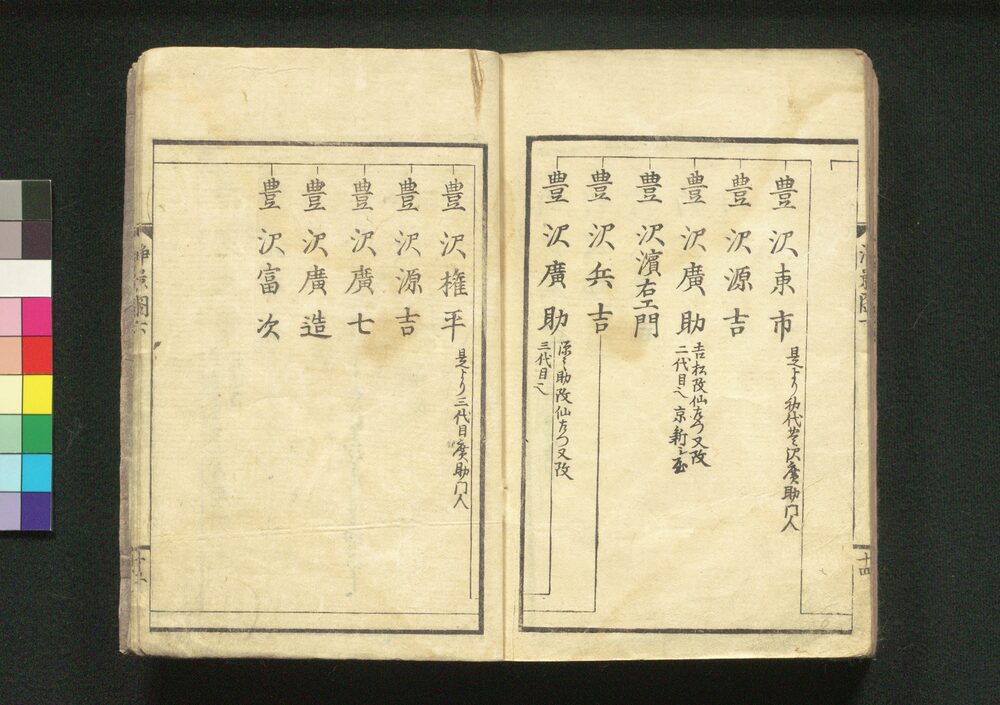 豊沢東市
是より初代豊沢廣助門人
豊沢源吉
豊沢廣助
吉松改仙左衛門又改
二代目也 京新シ屋
豊沢濱右エ門
豊沢兵吉
豊沢廣助
源之助改仙左衛門又改
三代目也
十四
豊沢権平
是より三代目廣助門人
豊沢源吉
豊沢廣七
豊沢廣造
豊沢富次